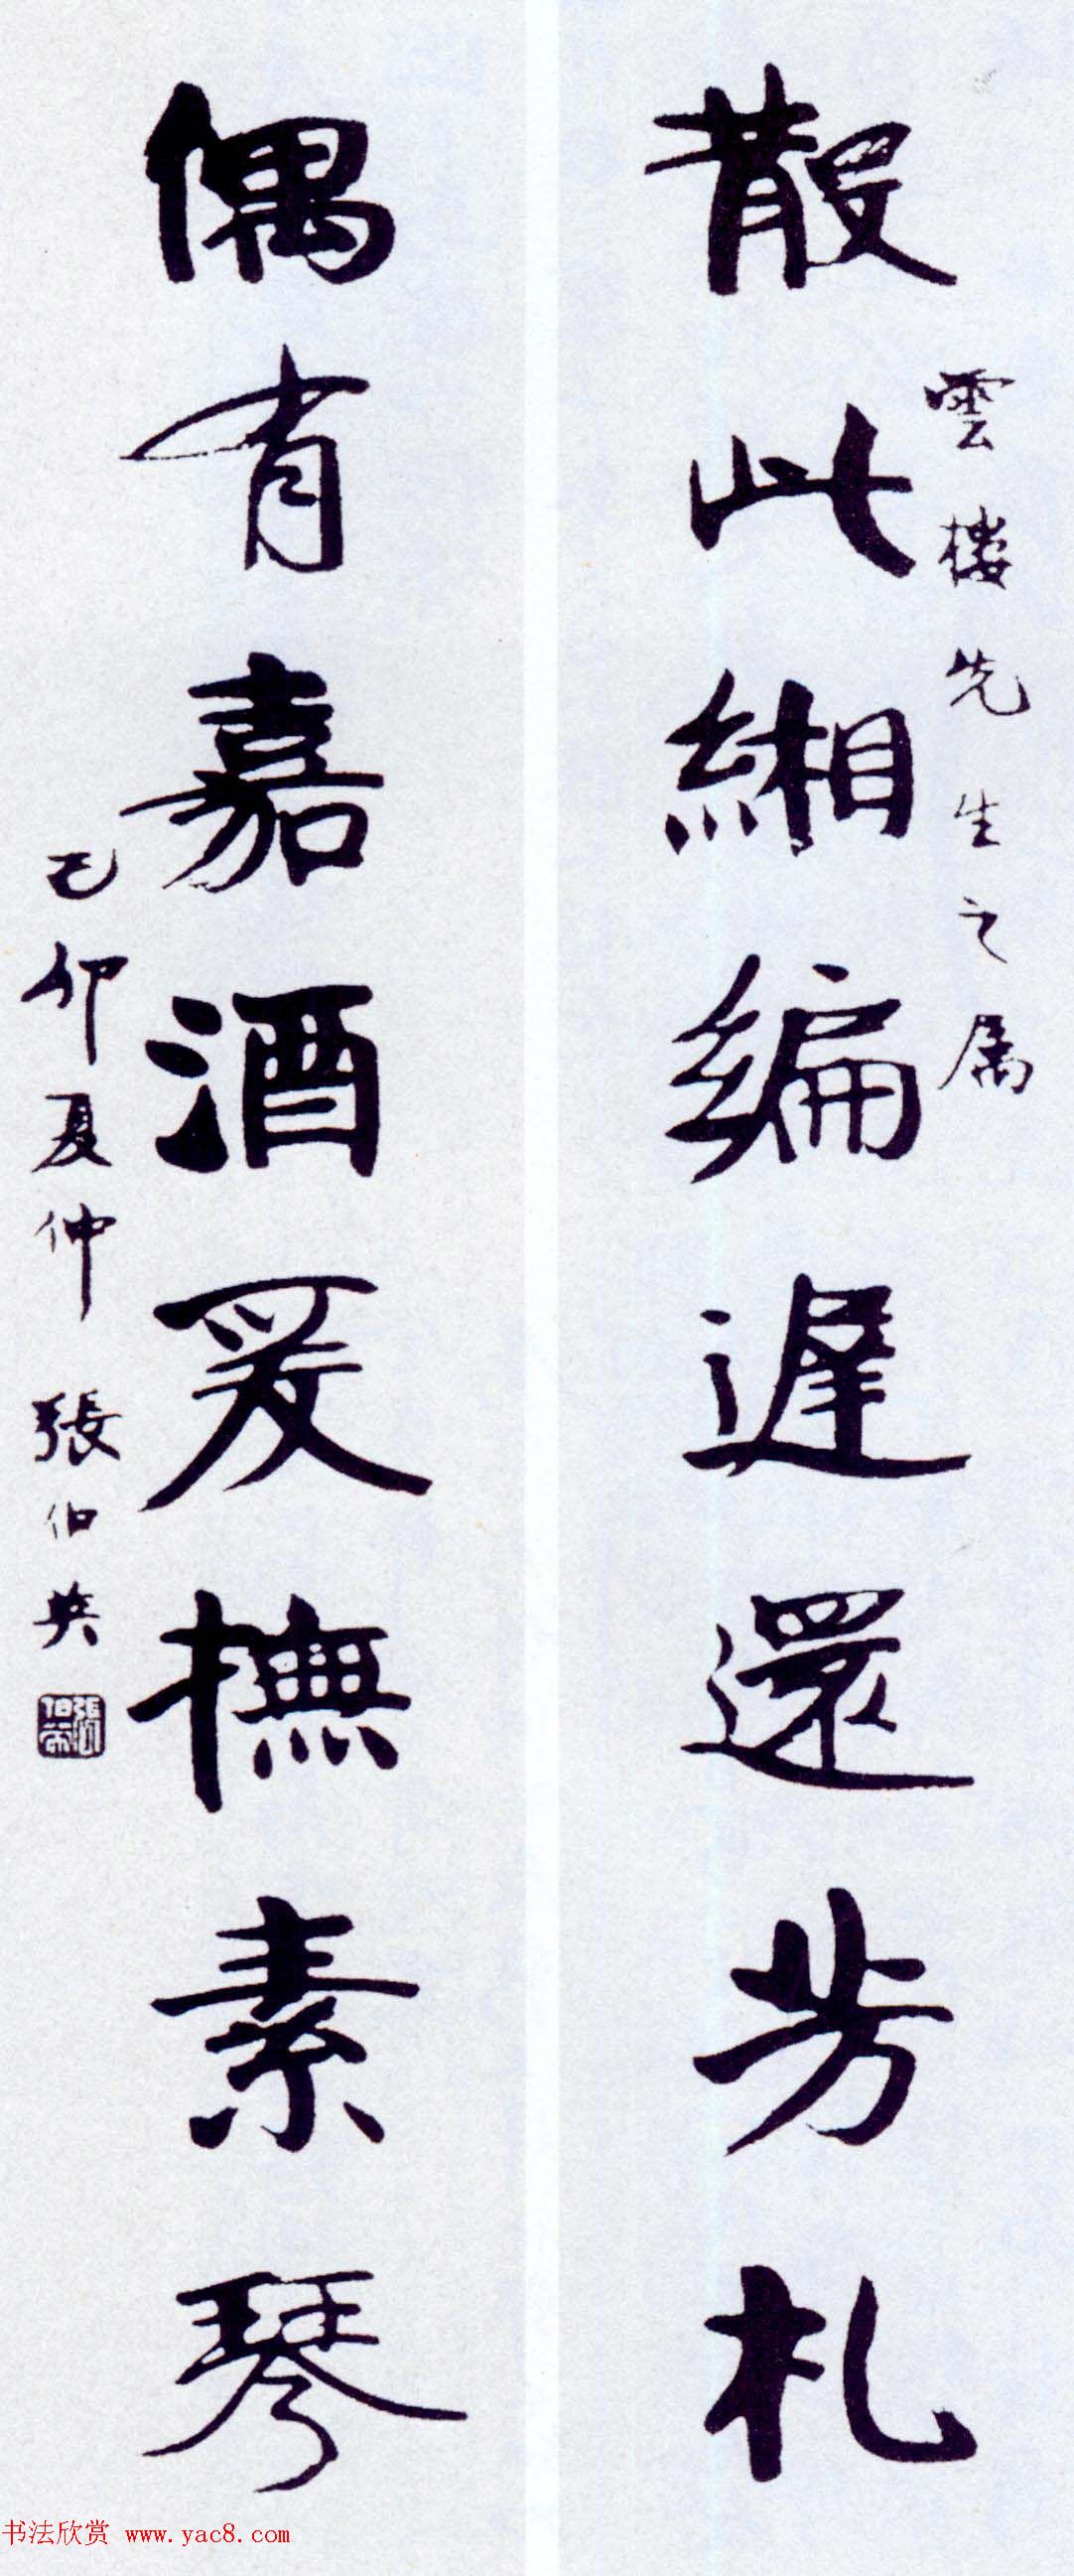 雲樓先生之属
散此緗編遲還芳札
偶有嘉酒爰撫素琴
己卯夏仲 張伯英
書法欣赏 www.yac8.com